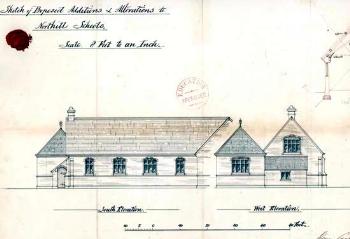 Sketch of Proposed Additions & Alterations to
Northill Schools.
Scale 8 Feet to an Inch.
EDUCATION
South Elevation.
West Elevation.
10 5 0 10 20 30 40 50 60 Feet.